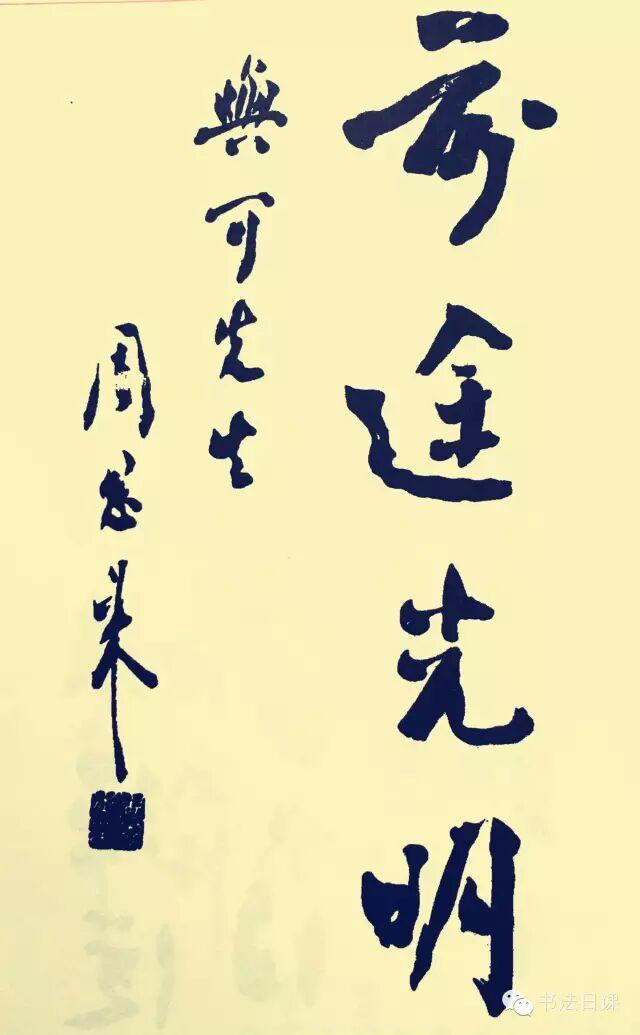 前途光明
與可先生
周恩来
书法日课